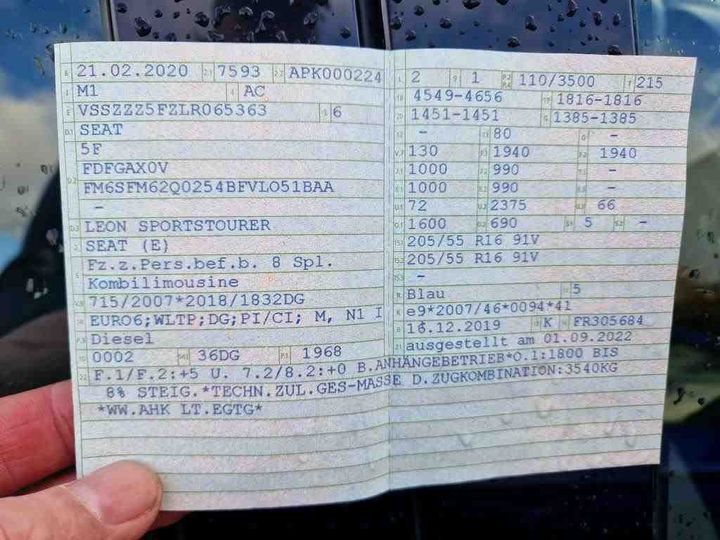 21.02.2020 7593 APK000224
M1 AC
VSSZZZ5FZLR065363 6
SEAT
5F
FDFGAX0V
FM6SFM62Q0254BFVLO51BAA
-
LEON SPORTSTOURER
SEAT (E)
Fz.z.Pers.bef.b. 8 Spl.
Kombilimousine
715/2007*2018/1832DG
EURO6;WLTP;DG;PI/CI; M, N1 I
Diesel
0002 36DG 1968
2 1 110/3500 215
4549-4656 1816-1816
1451-1451 1385-1385
- 80 -
130 1940 1940
1000 990 -
1000 990 -
72 2375 66
1600 690 5 -
205/55 R16 91V
205/55 R16 91V
-
Blau 5
e9*2007/46*0094*41
16.12.2019 K FR305684
ausgestellt am 01.09.2022
F.1/F.2:+5 U. 7.2/8.2:+0 B.ANHÄNGEBETRIEB*O.1:1800 BIS
8% STEIG.*TECHN.ZUL.GES-MASSE D.ZUGKOMBINATION:3540KG
*WW.AHK LT.EGTG*